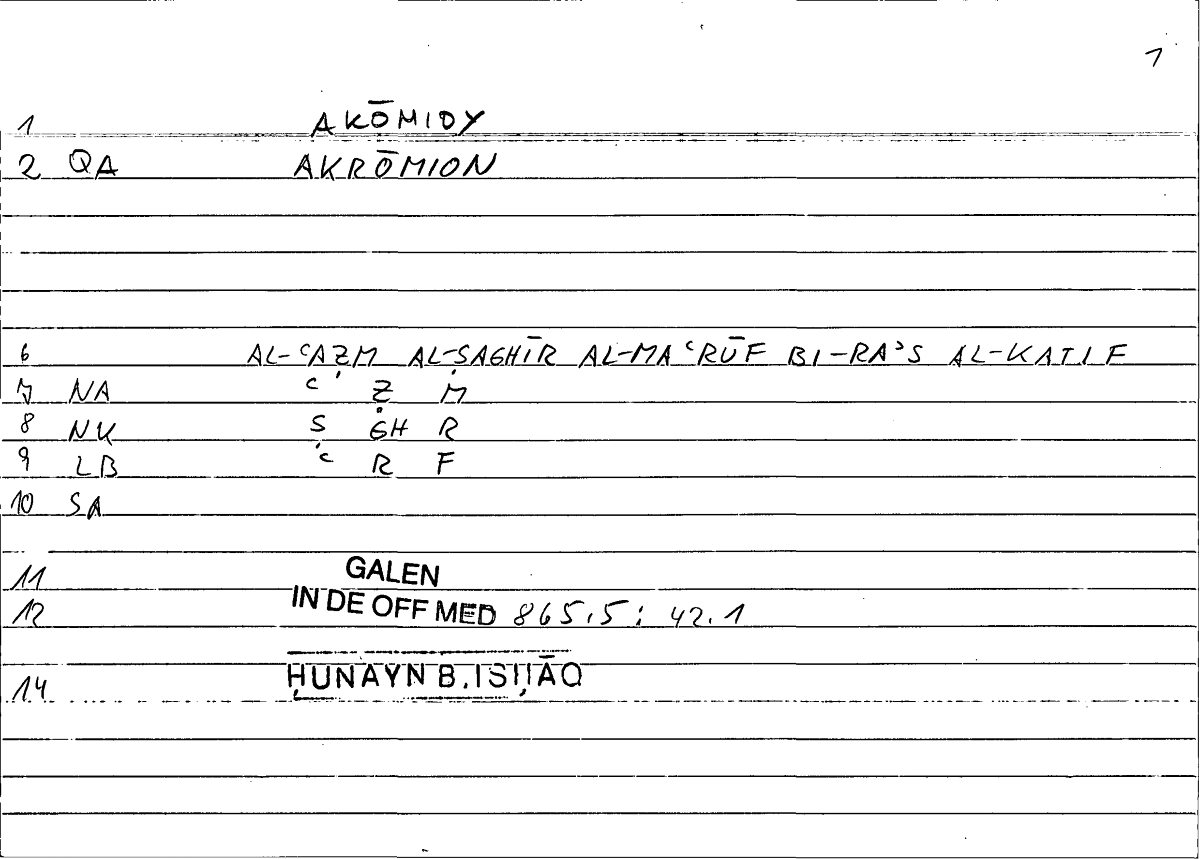 1
1 AKŌMIDY
2 QA AKRŌMION
6 AL-ʿAẒM AL-ṢAGHĪR AL-MAʿRŪF BI-RAʾS AL-KATIF
7 NA ʿ Ẓ M
8 NK Ṣ GH R
9 LB ʿ R F
10 SA
11 GALEN
12 IN DE OFF MED 865,5 : 42.1
14 ḤUNAYN B. ISḤĀQ